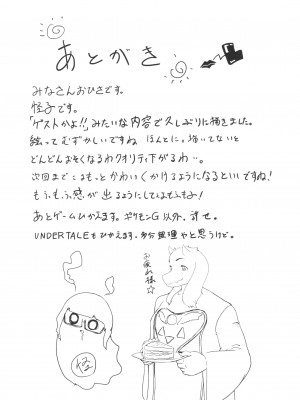 あとがき
みなさんおひさです。
怪子です。
「ゲストかよ!!」みたいな内容で久しぶりに描きました。
絵ってむずかしいですね ほんとに。描いてないと
どんどんおそくなるわクオリティ下がるわ…。
次回までにはもっとかわいくかけるようになるといいですね!
もふもふ感が出るようにしてしはもふもふ!
あとゲームひかえます。ポケモンGO以外。許せ。
UNDERTALEもひかえます。多分無理やと思うけど。
お疲れ様☆
怪